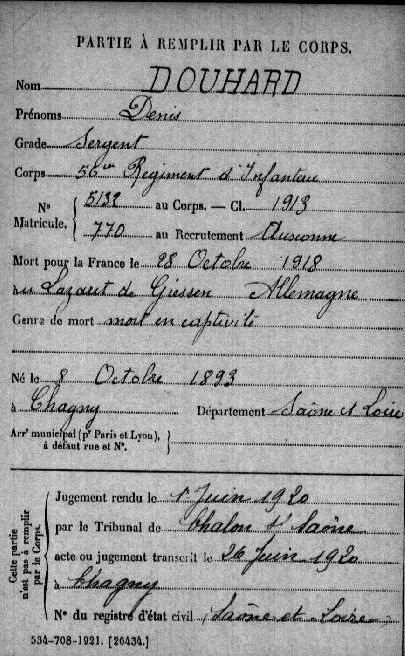 PARTIE À REMPLIR PAR LE CORPS.
Nom DOUHARD
Prénoms Denis
Grade Sergent
Corps 56me Régiment d'Infanterie
N° Matricule. { 5132 au Corps. — Cl. 1913
770 au Recrutement Auxonne
Mort pour la France le 28 Octobre 1918
au Lazaret de Giessen Allemagne
Genre de mort mort en captivité
Né le 8 Octobre 1893
à Chagny Département Saône et Loire
Arrt municipal (pr Paris et Lyon), à défaut rue et N°. {
Cette partie n'est pas à remplir par le Corps.
Jugement rendu le 1r Juin 1920
par le Tribunal de Chalon s/ Saône
acte ou jugement transcrit le 26 Juin 1920
à Chagny
N° du registre d'état civil Saône et Loire
534-708-1921. [26434.]